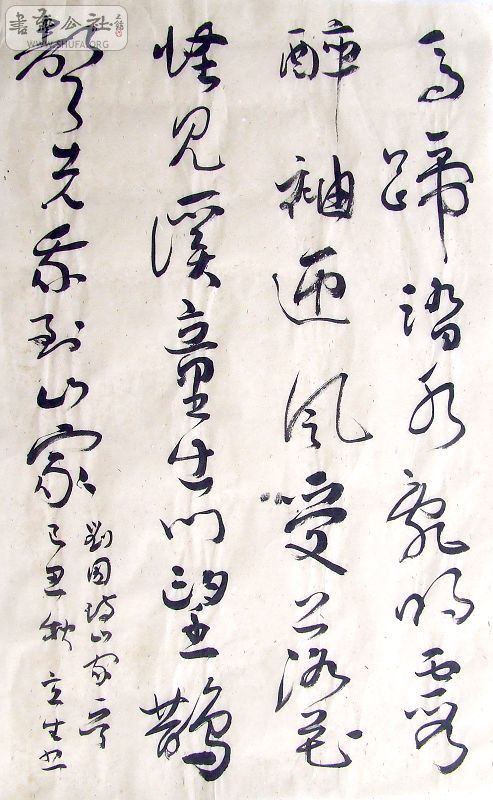 馬蹄踏水亂明霞
醉袖迎風受落花
怪見溪童出門望鵲
聲先我到山家
劉因詩山家一首
己丑秋 立生書
公社
WWW.SHUFA.ORG